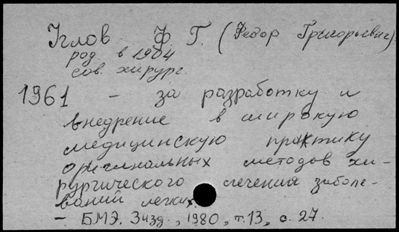 Углов Ф. Г. (Федор Григорьевич)
род. в 1904
сов. хирург.
1961 - за разработку и
внедрение в широкую
медицинскую практику
оригинальных методов хи-
рургического лечения заболе-
ваний легких
- БМЭ. 3 изд., 1980, т. 13, с. 27.